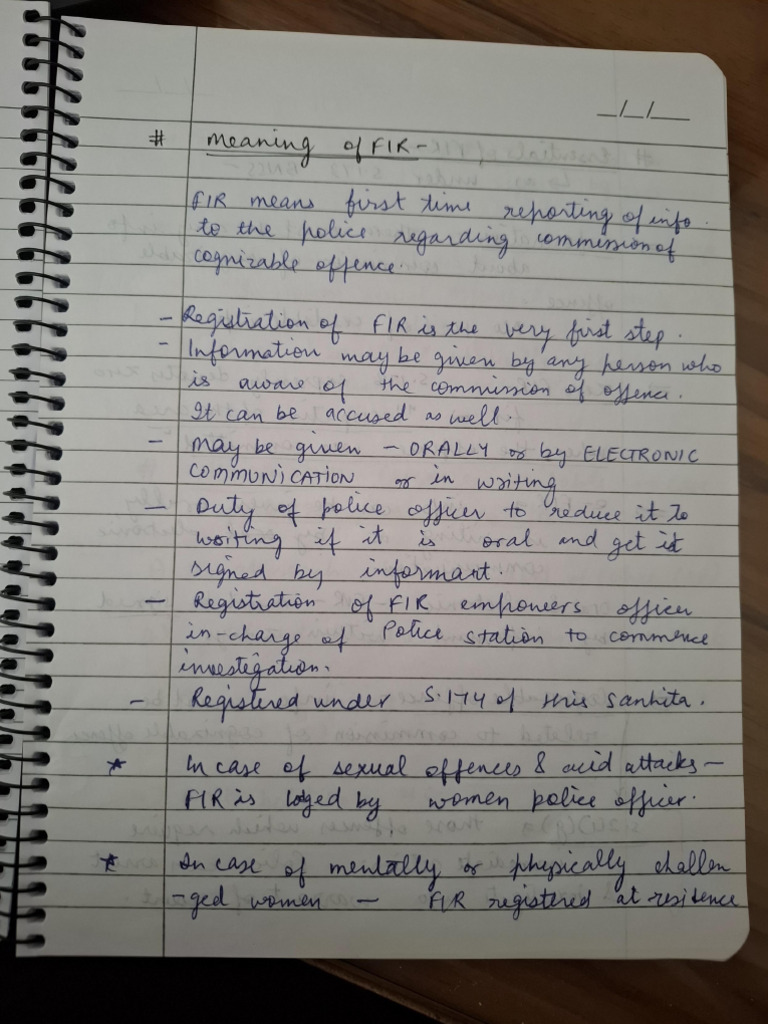 _/_/_
# Meaning of FIR -
FIR means first time reporting of info.
to the police regarding commission of
cognizable offence.
- Registration of FIR is the very first step.
- Information may be given by any person who
is aware of the commission of offence.
It can be accused as well.
- May be given - ORALLY or by ELECTRONIC
COMMUNICATION or in writing
- Duty of police officer to reduce it to
writing if it is oral and get it
signed by informant.
- Registration of FIR empowers officer
in-charge of Police station to commence
investigation.
- Registered under S.174 of this Sanhita.
* In case of sexual offences & acid attacks -
FIR is loged by women police officer.
* In case of mentally or physically challen
-ged women - FIR registered at resitence